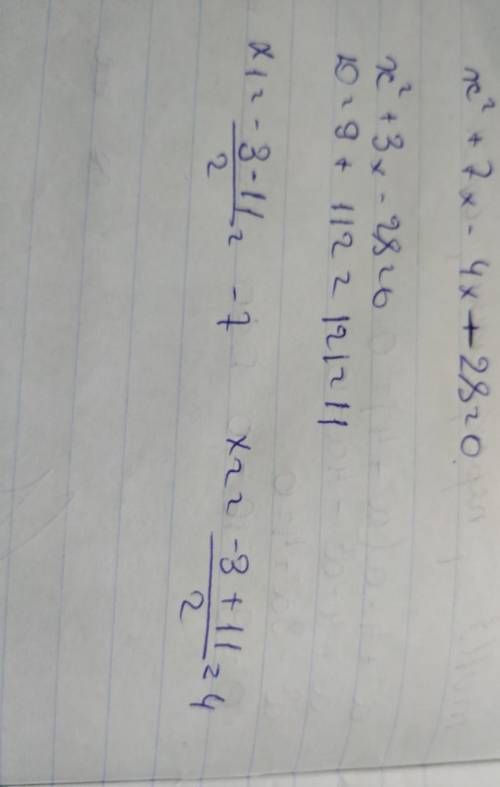 x² + 7x - 4x + 28 = 0
x² + 3x - 28 = 0
D = 9 + 112 = 121 = 11
x1 = -3-11/2 = -7 x2 = -3+11/2 = 4